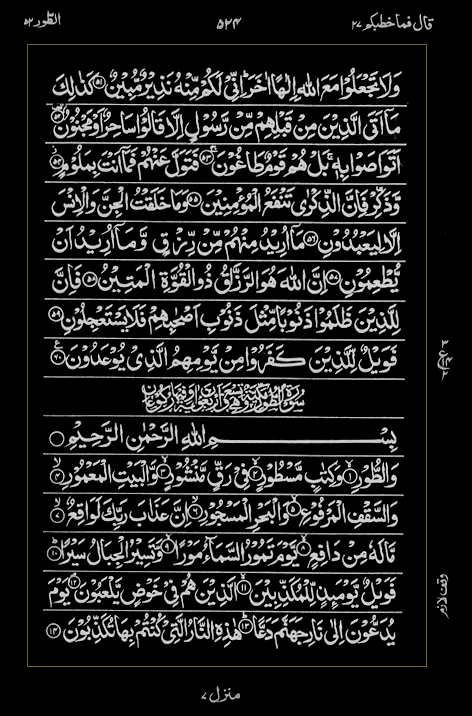 قال فما خطبكم ۲۷
۵۲۴
الطور ۵۲
وَلَا تَجْعَلُوْا مَعَ اللّٰهِ اِلٰهًا اٰخَرَؕ اِنِّیْ لَكُمْ مِّنْهُ نَذِیْرٌ مُّبِیْنٌ ۵۱ كَذٰلِكَ
مَاۤ اَتَی الَّذِیْنَ مِنْ قَبْلِهِمْ مِّنْ رَّسُوْلٍ اِلَّا قَالُوْا سَاحِرٌ اَوْ مَجْنُوْنٌ ۵۲
اَتَوَاصَوْا بِهٖۚ بَلْ هُمْ قَوْمٌ طَاغُوْنَ ۵۳ فَتَوَلَّ عَنْهُمْ فَمَاۤ اَنْتَ بِمَلُوْمٍ ۵۴
وَّذَكِّرْ فَاِنَّ الذِّكْرٰی تَنْفَعُ الْمُؤْمِنِیْنَ ۵۵ وَمَا خَلَقْتُ الْجِنَّ وَالْاِنْسَ
اِلَّا لِیَعْبُدُوْنِ ۵۶ مَاۤ اُرِیْدُ مِنْهُمْ مِّنْ رِّزْقٍ وَّمَاۤ اُرِیْدُ اَنْ
یُّطْعِمُوْنِ ۵۷ اِنَّ اللّٰهَ هُوَ الرَّزَّاقُ ذُو الْقُوَّةِ الْمَتِیْنُ ۵۸ فَاِنَّ
لِلَّذِیْنَ ظَلَمُوْا ذَنُوْبًا مِّثْلَ ذَنُوْبِ اَصْحٰبِهِمْ فَلَا یَسْتَعْجِلُوْنِ ۵۹
فَوَیْلٌ لِّلَّذِیْنَ كَفَرُوْا مِنْ یَّوْمِهِمُ الَّذِیْ یُوْعَدُوْنَ ۶۰
ع
سورة الطور مكية وهي تسع واربعون اية وفيها ركوعان
بِسْمِ اللّٰهِ الرَّحْمٰنِ الرَّحِیْمِ
وَالطُّوْرِ ۱ وَكِتٰبٍ مَّسْطُوْرٍ ۲ فِیْ رَقٍّ مَّنْشُوْرٍ ۳ وَّالْبَیْتِ الْمَعْمُوْرِ ۴
وَالسَّقْفِ الْمَرْفُوْعِ ۵ وَالْبَحْرِ الْمَسْجُوْرِ ۶ اِنَّ عَذَابَ رَبِّكَ لَوَاقِعٌ ۷
مَّا لَهٗ مِنْ دَافِعٍ ۸ یَّوْمَ تَمُوْرُ السَّمَآءُ مَوْرًا ۹ وَّتَسِیْرُ الْجِبَالُ سَیْرًا ۱۰
فَوَیْلٌ یَّوْمَىِٕذٍ لِّلْمُكَذِّبِیْنَ ۱۱ الَّذِیْنَ هُمْ فِیْ خَوْضٍ یَّلْعَبُوْنَ ۱۲ یَوْمَ
وقف لازم
یُدَعُّوْنَ اِلٰی نَارِ جَهَنَّمَ دَعًّا ۱۳ هٰذِهِ النَّارُ الَّتِیْ كُنْتُمْ بِهَا تُكَذِّبُوْنَ ۱۴
منزل ۷